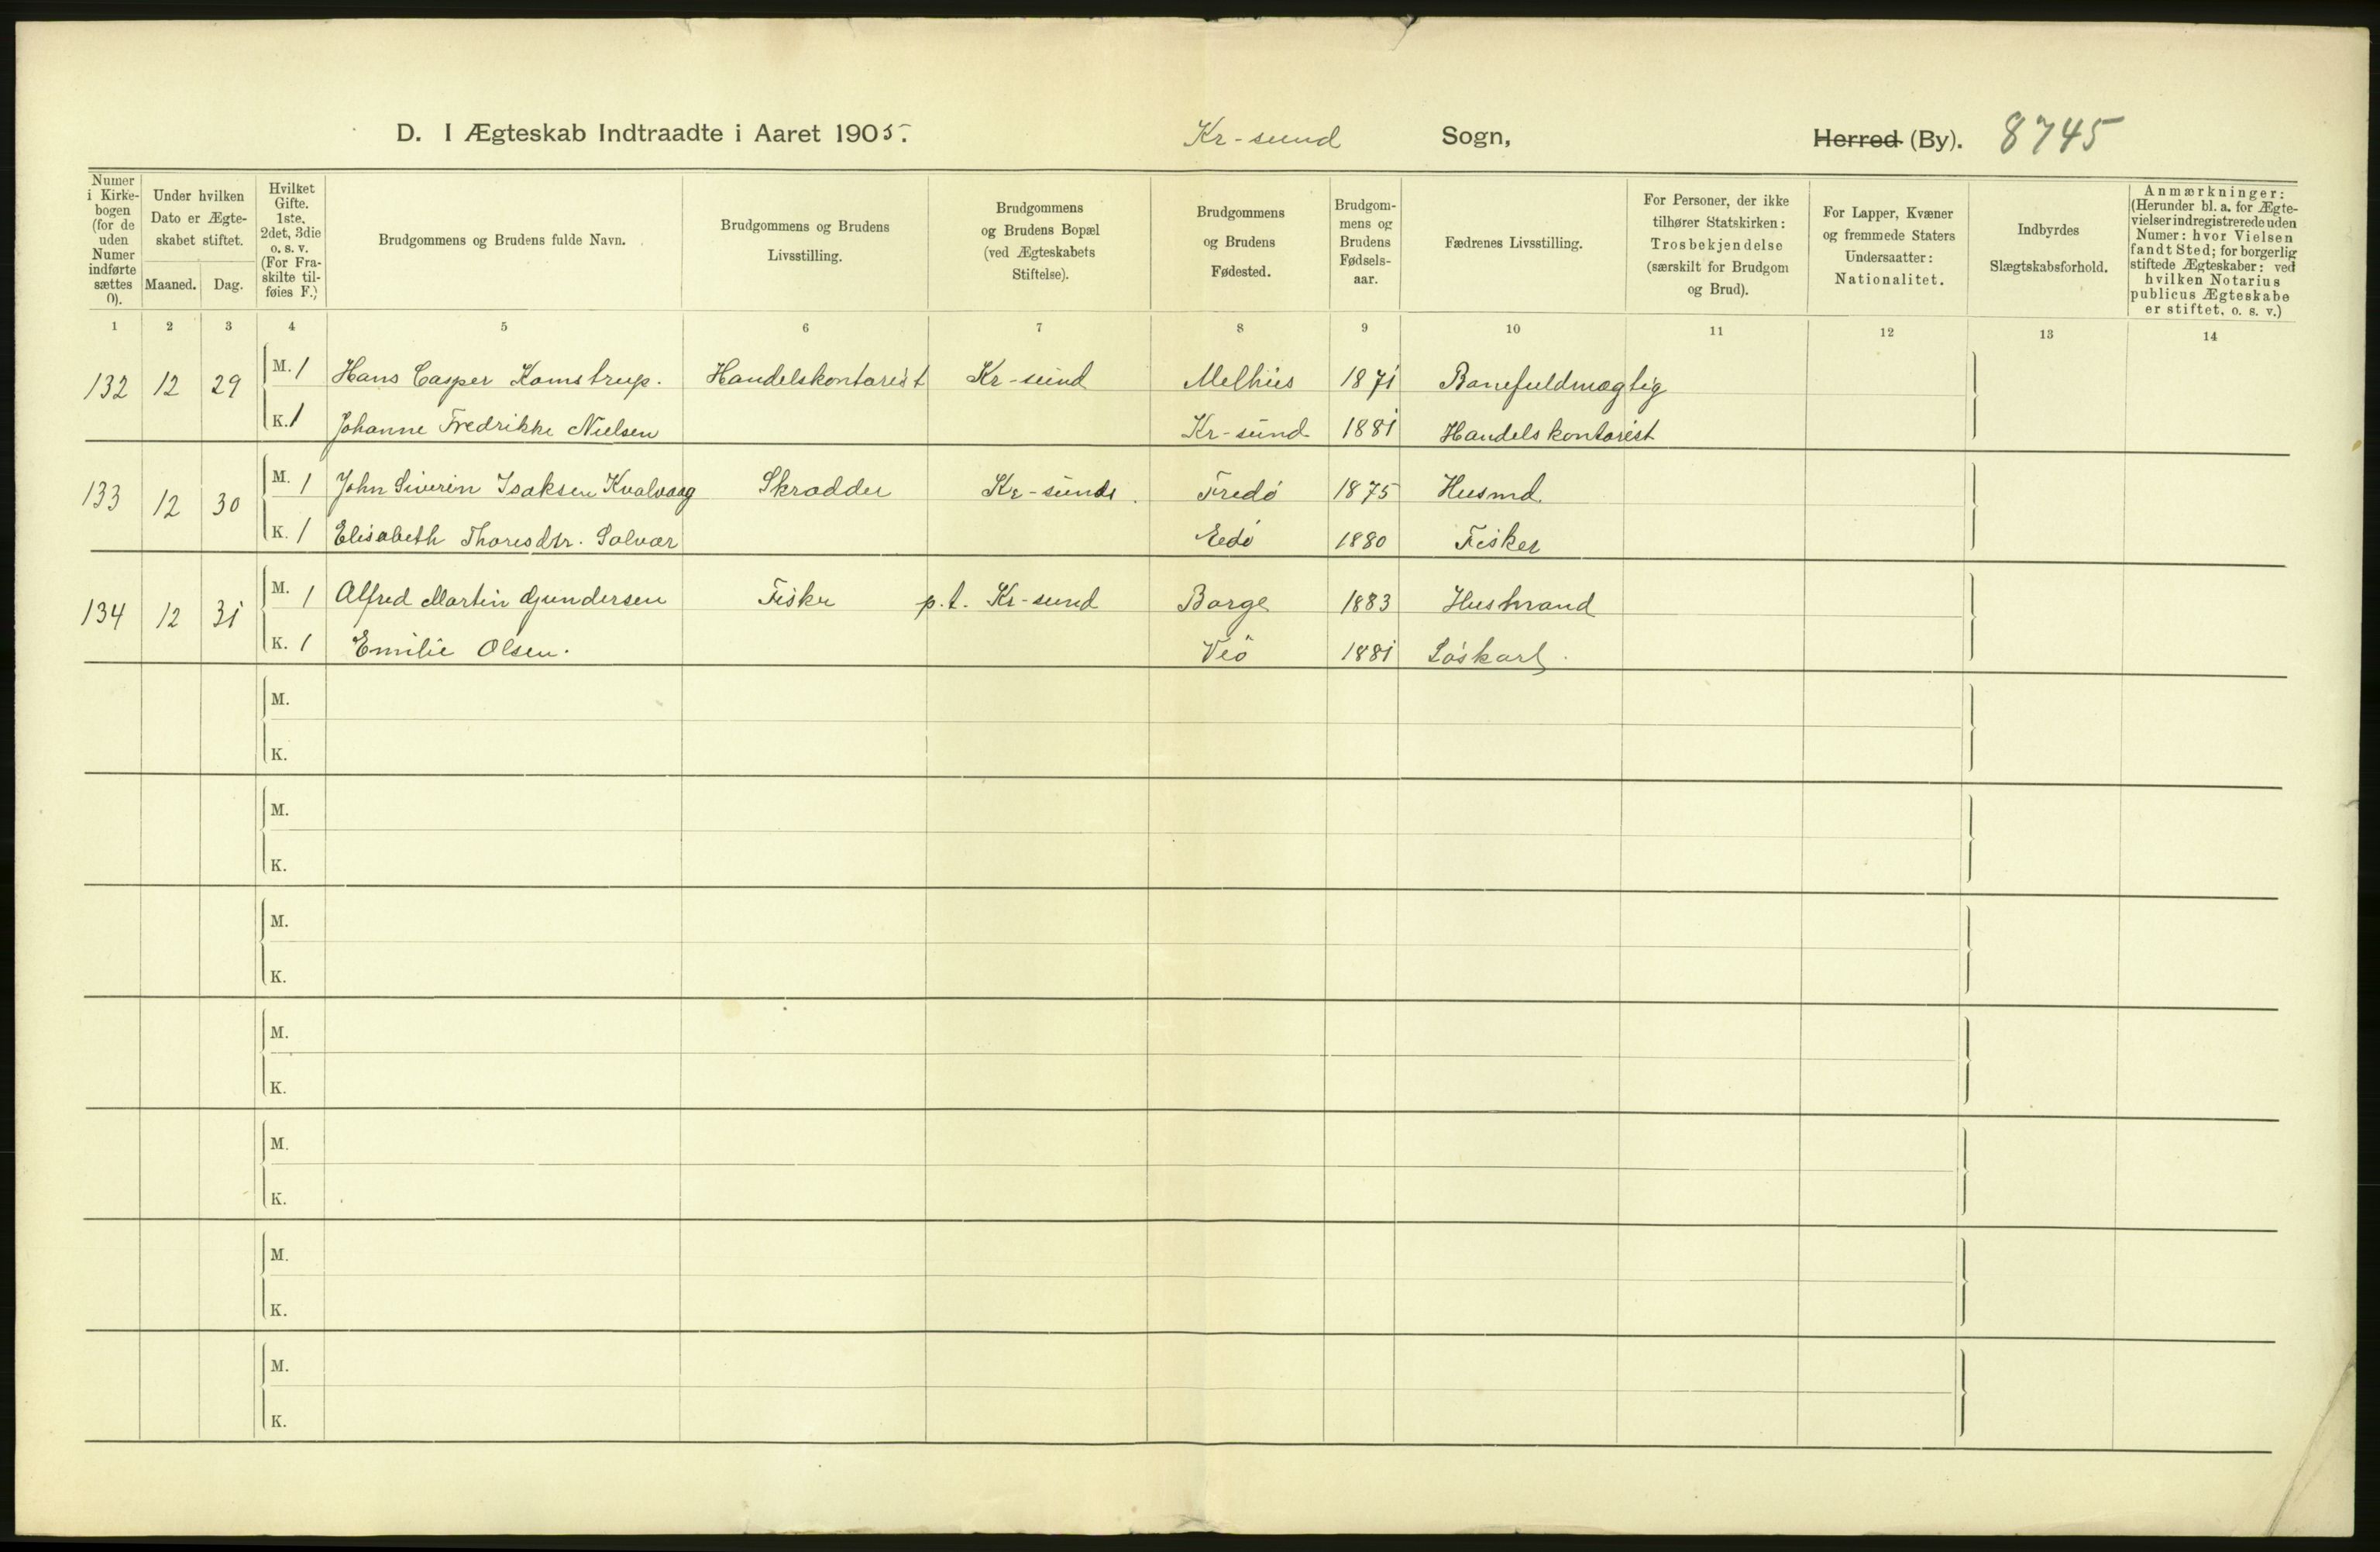 D. I Ægteskab Indtraadte i Aaret 1905. Kr-sund Sogn, Herred (By). 8745
Numer i Kirkebogen (for de uden Numer indførte sættes 0).
Under hvilken Dato er Ægteskabet stiftet.
Maaned. Dag.
Hvilket Gifte. 1ste, 2det, 3die o. s. v. (For Fraskilte tilføies F.)
Brudgommens og Brudens fulde Navn.
Brudgommens og Brudens Livsstilling.
Brudgommens og Brudens Bopæl (ved Ægteskabets Stiftelse).
Brudgommens og Brudens Fødested.
Brudgommens og Brudens Fødselsaar.
Fædrenes Livsstilling.
For Personer, der ikke tilhører Statskirken: Trosbekjendelse (særskilt for Brudgom og Brud).
For Lapper, Kvæner og fremmede Staters Undersaatter: Nationalitet.
Indbyrdes Slægtskabsforhold.
Anmærkninger: (Herunder bl. a. for Ægtevielser indregistrerede uden Numer: hvor Vielsen fandt Sted; for borgerlig stiftede Ægteskaber: ved hvilken Notarius publicus Ægteskabe er stiftet, o. s. v.)
1 2 3 4 5 6 7 8 9 10 11 12 13 14
132 12 29 M. 1 Hans Casper Kamstrup. Handelskontorist Kr-sund Melhus 1871 Banefuldmægtig
K. 1 Johanne Fredrikke Nielsen Kr-sund 1881 Handelskontorist
133 12 30 M. 1 John Siverin Isaksen Kvalvaag Skrædder Kr-sund. Fredø 1875 Husmd.
K. 1 Elisabeth Thoresdtr. Solvær Edø 1880 Fisker
134 12 31 M. 1 Alfred Martin Gundersen Fisker p.t. Kr-sund Borge 1883 Husmand
K. 1 Emilie Olsen. Veø 1881 Løskarl.
M.
K.
M.
K.
M.
K.
M.
K.
M.
K.
M.
K.
M.
K.